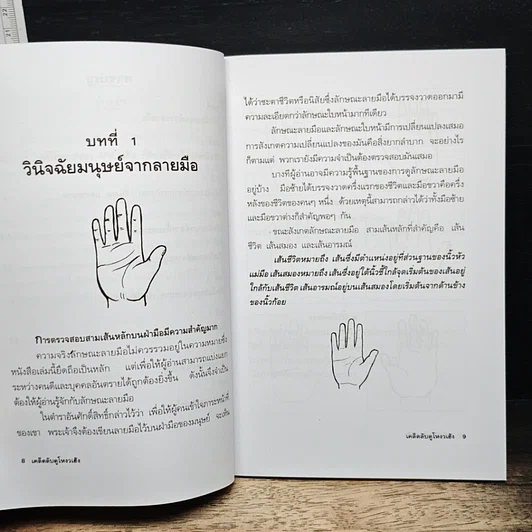 บทที่ 1
วินิจฉัยมนุษย์จากลายมือ
การตรวจสอบสามเส้นหลักบนฝ่ามือมีความสำคัญมาก
ความจริงลักษณะลายมือไม่ควรรวมอยู่ในความหมายซึ่ง
หนังสือเล่มนี้ยึดถือเป็นหลัก แต่เพื่อให้ผู้อ่านสามารถแบ่งแยก
ระหว่างคนดีและบุคคลอันตรายได้ถูกต้องยิ่งขึ้น ดังนั้นจึงจำเป็น
ต้องให้ผู้อ่านรู้จักกับลักษณะลายมือ
ในตำราอันศักดิ์สิทธิ์กล่าวไว้ว่า เพื่อให้ผู้คนเข้าใจภาระหน้าที่
ของเขา พระเจ้าจึงต้องเขียนลายมือไว้บนฝ่ามือของมนุษย์ จะเห็น
8 เคล็ดลับดูโหงวเฮ้ง
ได้ว่าชะตาชีวิตหรือนิสัยซึ่งลักษณะลายมือได้บรรจงวาดออกมามี
ความละเอียดกว่าลักษณะใบหน้ามากทีเดียว
ลักษณะลายมือและลักษณะใบหน้ามีการเปลี่ยนแปลงเสมอ
การสังเกตความเปลี่ยนแปลงของมันคือสิ่งยากลำบาก จะอย่างไร
ก็ตามแต่ พวกเรายังมีความจำเป็นต้องตรวจสอบมันเสมอ
บางทีผู้อ่านอาจมีความรู้พื้นฐานของการดูลักษณะลายมือ
อยู่บ้าง มือซ้ายได้บรรจงวาดครึ่งแรกของชีวิตและมือขวาคือครึ่ง
หลังของชีวิตของคนๆ หนึ่ง ด้วยเหตุนี้สามารถกล่าวได้ว่าทั้งมือซ้าย
และมือขวาต่างก็สำคัญพอๆ กัน
ขณะสังเกตลักษณะลายมือ สามเส้นหลักที่สำคัญคือ เส้น
ชีวิต เส้นสมอง และเส้นอารมณ์
เส้นชีวิตหมายถึง เส้นซึ่งมีตำแหน่งอยู่ที่ส่วนฐานของนิ้วหัว
แม่มือ เส้นสมองหมายถึง เส้นซึ่งอยู่ใต้นิ้วชี้ใกล้จุดเริ่มต้นของเส้นอยู่
ใกล้กับเส้นชีวิต เส้นอารมณ์อยู่บนเส้นสมองโดยเริ่มต้นจากด้านข้าง
ของนิ้วก้อย
เคล็ดลับดูโหงวเฮ้ง 9